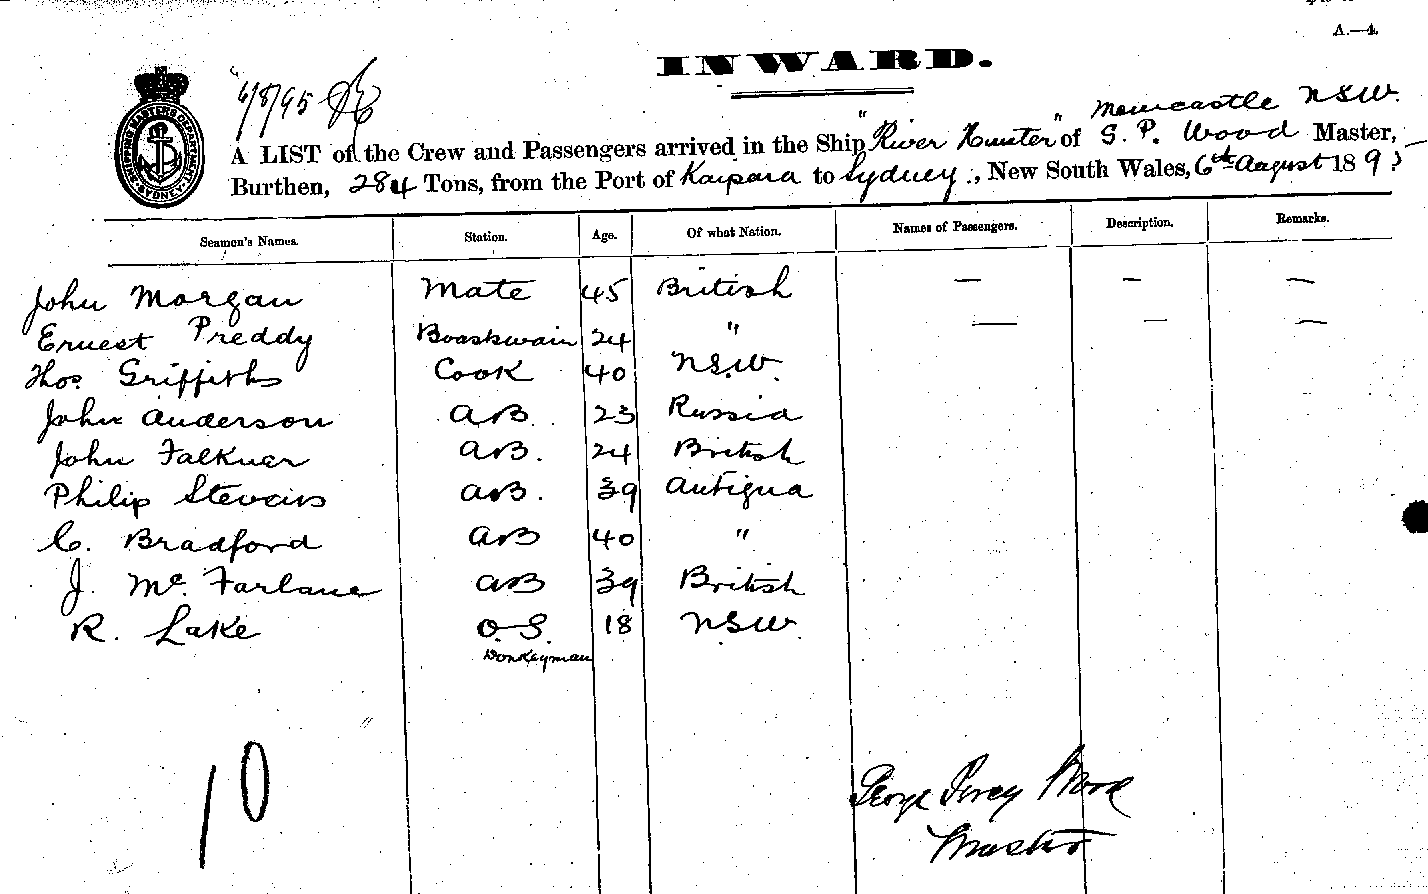 A.—4.
INWARD.
6/8/95
Newcastle NSW.
A LIST of the Crew and Passengers arrived in the Ship "River Hunter" of G. P. Wood Master,
Burthen, 284 Tons, from the Port of Kaipara to Sydney, New South Wales, 6th August 1895
SHIPPING MASTERS DEPARTMENT SYDNEY
Seamen's Names. Station. Age. Of what Nation. Names of Passengers. Description. Remarks.
John Morgan Mate 45 British — — —
Ernest Preddy Boatswain 24 " — — —
Thos Griffiths Cook 40 N.S.W.
John Anderson AB. 23 Russia
John Falkner AB. 24 British
Philip Stevens AB. 39 Antigua
C. Bradford AB 40 "
J. Mc. Farlane AB 39 British
R. Lake O.S. 18 N.S.W.
Donkeyman
10
George Percy Wood
Master